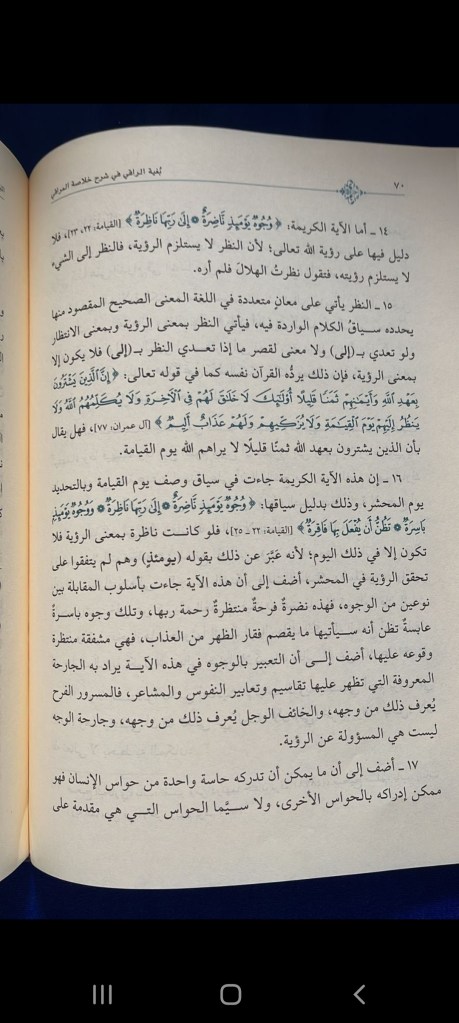 ٧٠ بُغية الراقي في شرح خلاصة العراقي
١٤ ـ أما الآية الكريمة: ﴿ وُجُوهٌ يَوْمَئِذٍ نَّاضِرَةٌ * إِلَىٰ رَبِّهَا نَاظِرَةٌ ﴾ [القيامة: ٢٢، ٢٣]، فلا
دليل فيها على رؤية الله تعالى؛ لأن النظر لا يستلزم الرؤية، فالنظر إلى الشيء
لا يستلزم رؤيته، فتقول نظرتُ الهلالَ فلم أره.
١٥ ـ النظر يأتي على معانٍ متعددة في اللغة المعنى الصحيح المقصود منها
يحدده سياقُ الكلام الواردة فيه، فيأتي النظر بمعنى الرؤية وبمعنى الانتظار
ولو تعدي بـ(إلى) ولا معنى لقصر ما إذا تعدى النظر بـ(إلى) فلا يكون إلا
بمعنى الرؤية، فإن ذلك يردُّه القرآن نفسه كما في قوله تعالى: ﴿ إِنَّ الَّذِينَ يَشْتَرُونَ
بِعَهْدِ اللَّهِ وَأَيْمَانِهِمْ ثَمَنًا قَلِيلًا أُوْلَٰئِكَ لَا خَلَاقَ لَهُمْ فِي الْآخِرَةِ وَلَا يُكَلِّمُهُمُ اللَّهُ وَلَا
يَنظُرُ إِلَيْهِمْ يَوْمَ الْقِيَامَةِ وَلَا يُزَكِّيهِمْ وَلَهُمْ عَذَابٌ أَلِيمٌ ﴾ [آل عمران: ٧٧]، فهل يقال
بأن الذين يشترون بعهد الله ثمنًا قليلًا لا يراهم الله يوم القيامة.
١٦ ـ إن هذه الآية الكريمة جاءت في سياق وصف يوم القيامة وبالتحديد
يوم المحشر، وذلك بدليل سياقها: ﴿ وُجُوهٌ يَوْمَئِذٍ نَّاضِرَةٌ * إِلَىٰ رَبِّهَا نَاظِرَةٌ * وَوُجُوهٌ يَوْمَئِذٍ
بَاسِرَةٌ * تَظُنُّ أَن يُفْعَلَ بِهَا فَاقِرَةٌ ﴾ [القيامة: ٢٢ ـ ٢٥]، فلو كانت ناظرة بمعنى الرؤية فلا
تكون إلا في ذلك اليوم؛ لأنه عَبَّرَ عن ذلك بقوله (يومئذٍ) وهم لم يتفقوا على
تحقق الرؤية في المحشر، أضف إلى أن هذه الآية جاءت بأسلوب المقابلة بين
نوعين من الوجوه، فهذه نضرةٌ فرحةٌ منتظرةٌ رحمة ربها، وتلك وجوه باسرةٌ
عابسةٌ تظن أنه سيأتيها ما يقصم فقار الظهر من العذاب، فهي مشفقة منتظرة
وقوعه عليها، أضف إلى أن التعبير بالوجوه في هذه الآية يراد به الجارحة
المعروفة التي تظهر عليها تقاسيم وتعابير النفوس والمشاعر، فالمسرور الفرح
يُعرف ذلك من وجهه، والخائف الوجل يُعرف ذلك من وجهه، وجارحة الوجه
ليست هي المسؤولة عن الرؤية.
١٧ ـ أضف إلى أن ما يمكن أن تدركه حاسة واحدة من حواس الإنسان فهو
ممكن إدراكه بالحواس الأخرى، ولا سيَّما الحواس التي هي مقدمة على